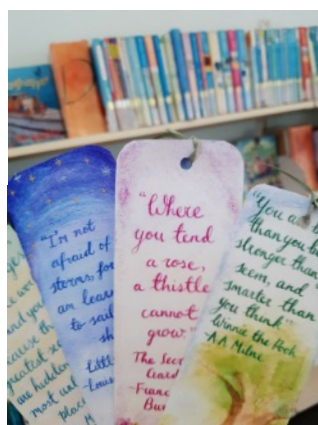 "I'm not
afraid of
storms, for
am learn
to sail
sh
Little
-Louis
"Where
you tend
a rose,
a thistle
cannot
grow."
The Sec
Gard
-Franc
Bur
"You are
than you b
stronger than
seem, and
smarter than
you think"
Winnie the Pooh
-A.A Milne
and you
cause th
greatest se
are hidden
most unl
place